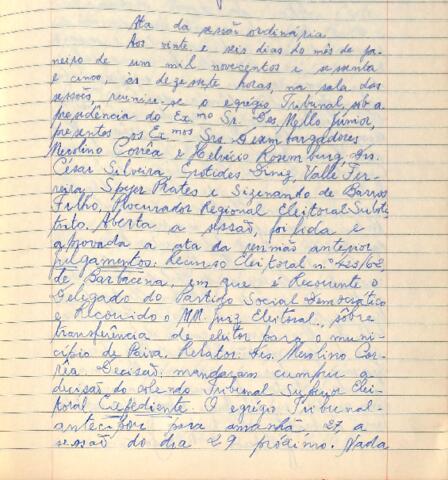 Ata da sessão ordinária
Aos vinte e seis dias do mês de ja-
neiro de um mil novecentos e sessenta
e cinco, às dezessete horas, na sala das
sessões, reuniu-se o egrégio Tribunal, sob a
presidência do Exmo Sr. Des. Mello Júnior,
presentes os Exmos Srs. Desembargadores
Merolino Corrêa e Helvécio Rosemburg, Drs.
César Silveira, Erotides Diniz, Valle Fer-
reira, Speyer Prates e Sizenando de Barros
Filho, Procurador Regional Eleitoral Substi-
tuto. Aberta a sessão, foi lida e
aprovada a ata da reunião anterior
Julgamentos: Recurso Eleitoral n.º 423/62,
de Barbacena, em que é Recorrente o
Delegado do Partido Social Democrático
e Recorrido o MM. Juiz Eleitoral, sôbre
transferência de eleitor para o muni-
cípio de Paiva. Relator: Des. Merolino Cor-
rêa Decisão: mandaram cumprir a
decisão do Colendo Tribunal Superior Elei-
toral Expediente. O egrégio Tribunal
antecipou para amanhã 27, a
sessão do dia 29 próximo. Nada